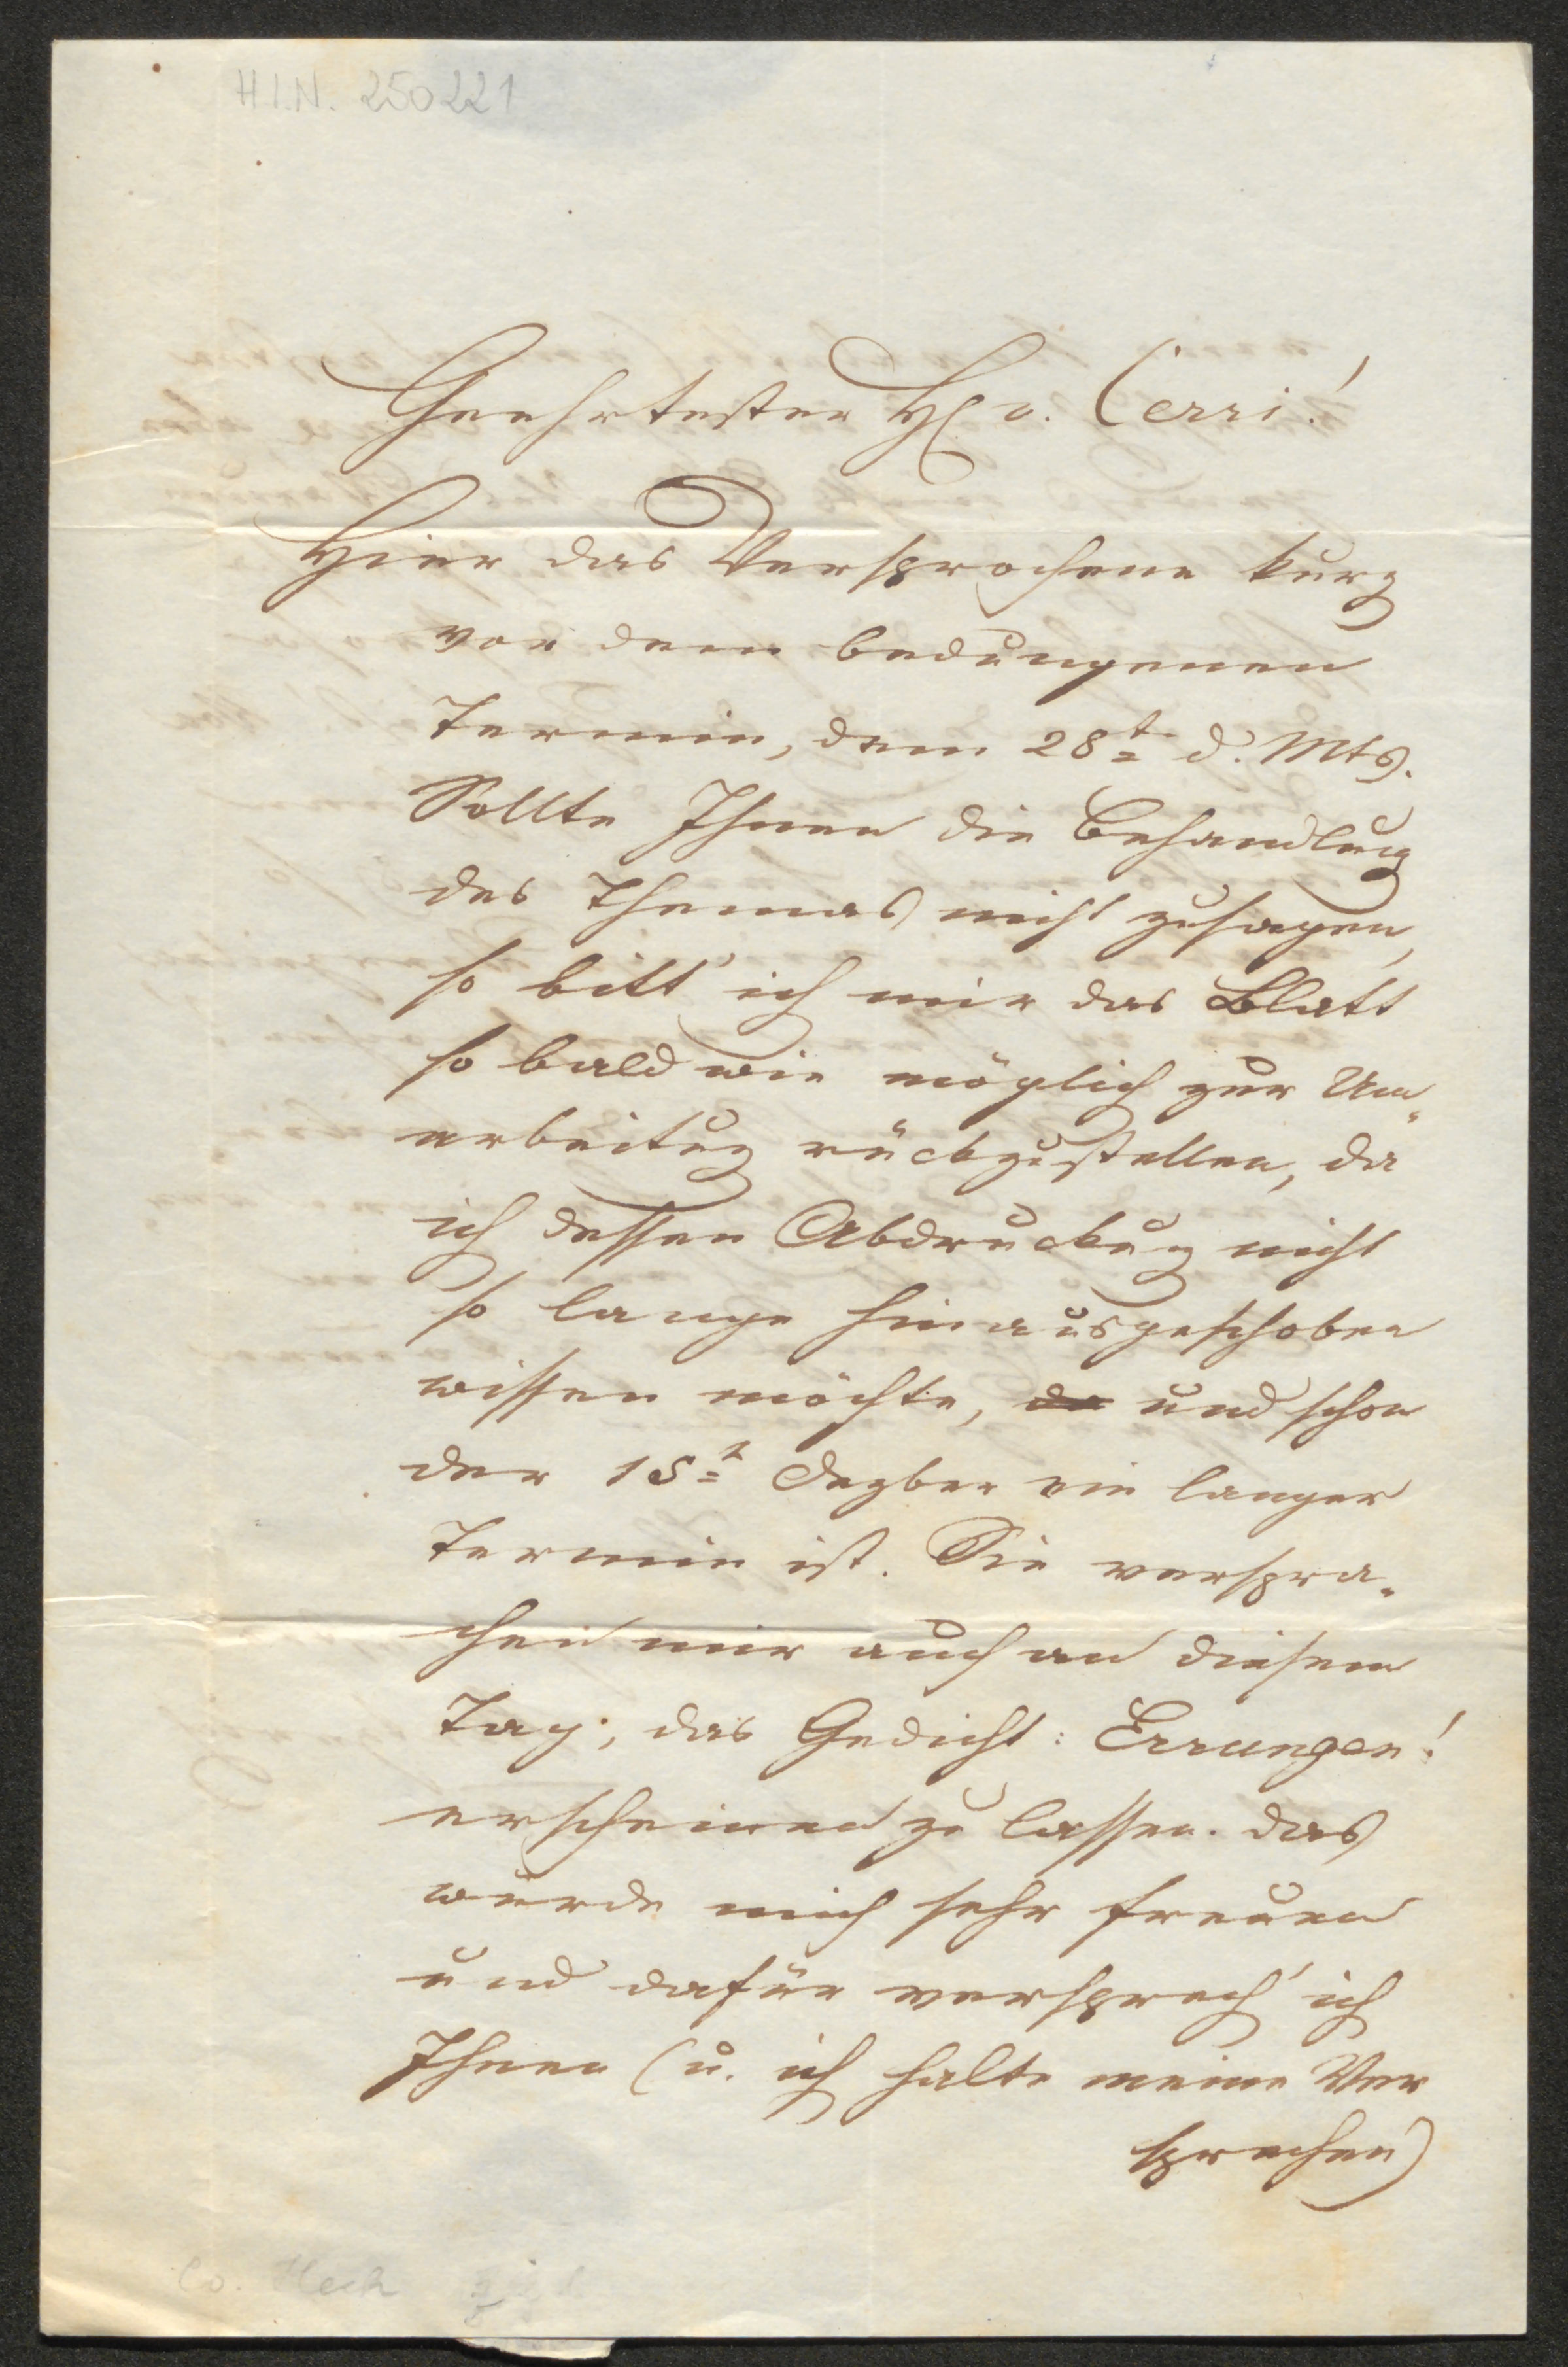 H.I.N. 250221
Geehrtester H. v. Cerri!
Hier das Versprochene kurz
vor dem bedungenen
Termin, dem 28t d. Mts.
Sollte Ihnen die Behandlung
des Themas nicht zusagen,
so bitt' ich mir das Blatt
so bald wie möglich zur Um-
arbeitung rückzustellen, da
ich dessen Abdruckung nicht
so lange hinausgeschoben
wissen möchte, da und schon
der 15t Dezber ein langer
Termin ist. Sie verspra-
chen mir auch an diesem
Tag, das Gedicht: Errungen!
erscheinen zu lassen. das
würde mich sehr freuen
und dafür versprech' ich
Ihnen (u. ich halte meine Ver
sprechen)